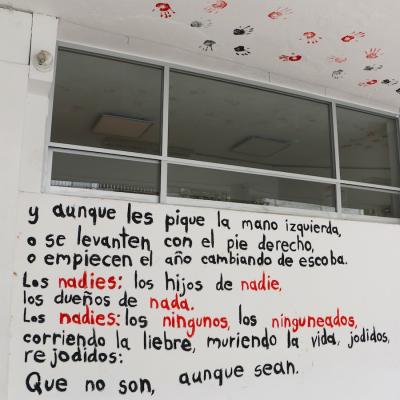 y aunque les pique la mano izquierda,
o se levanten con el pie derecho,
o empiecen el año cambiando de escoba.
Los nadies: los hijos de nadie,
los dueños de nada.
Los nadies: los ningunos, los ninguneados,
corriendo la liebre, muriendo la vida, jodidos,
rejodidos:
Que no son, aunque sean.